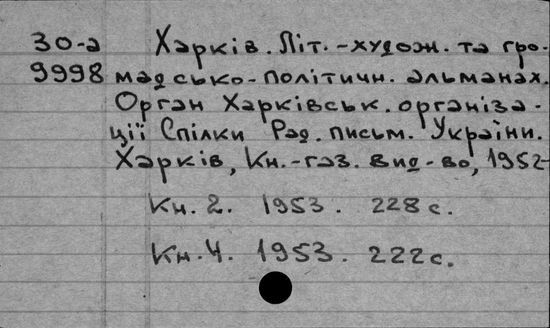 30-а Харків. Літ.-худож. та гро-
9998 мадсько-політичн. альманах.
Орган Харківськ. організа-
ції Спілки Рад. письм. України.
Харків, Кн.-газ. вид-во, 1952-
Кн. 2. 1953. 228 с.
Кн. 4. 1953. 222 с.